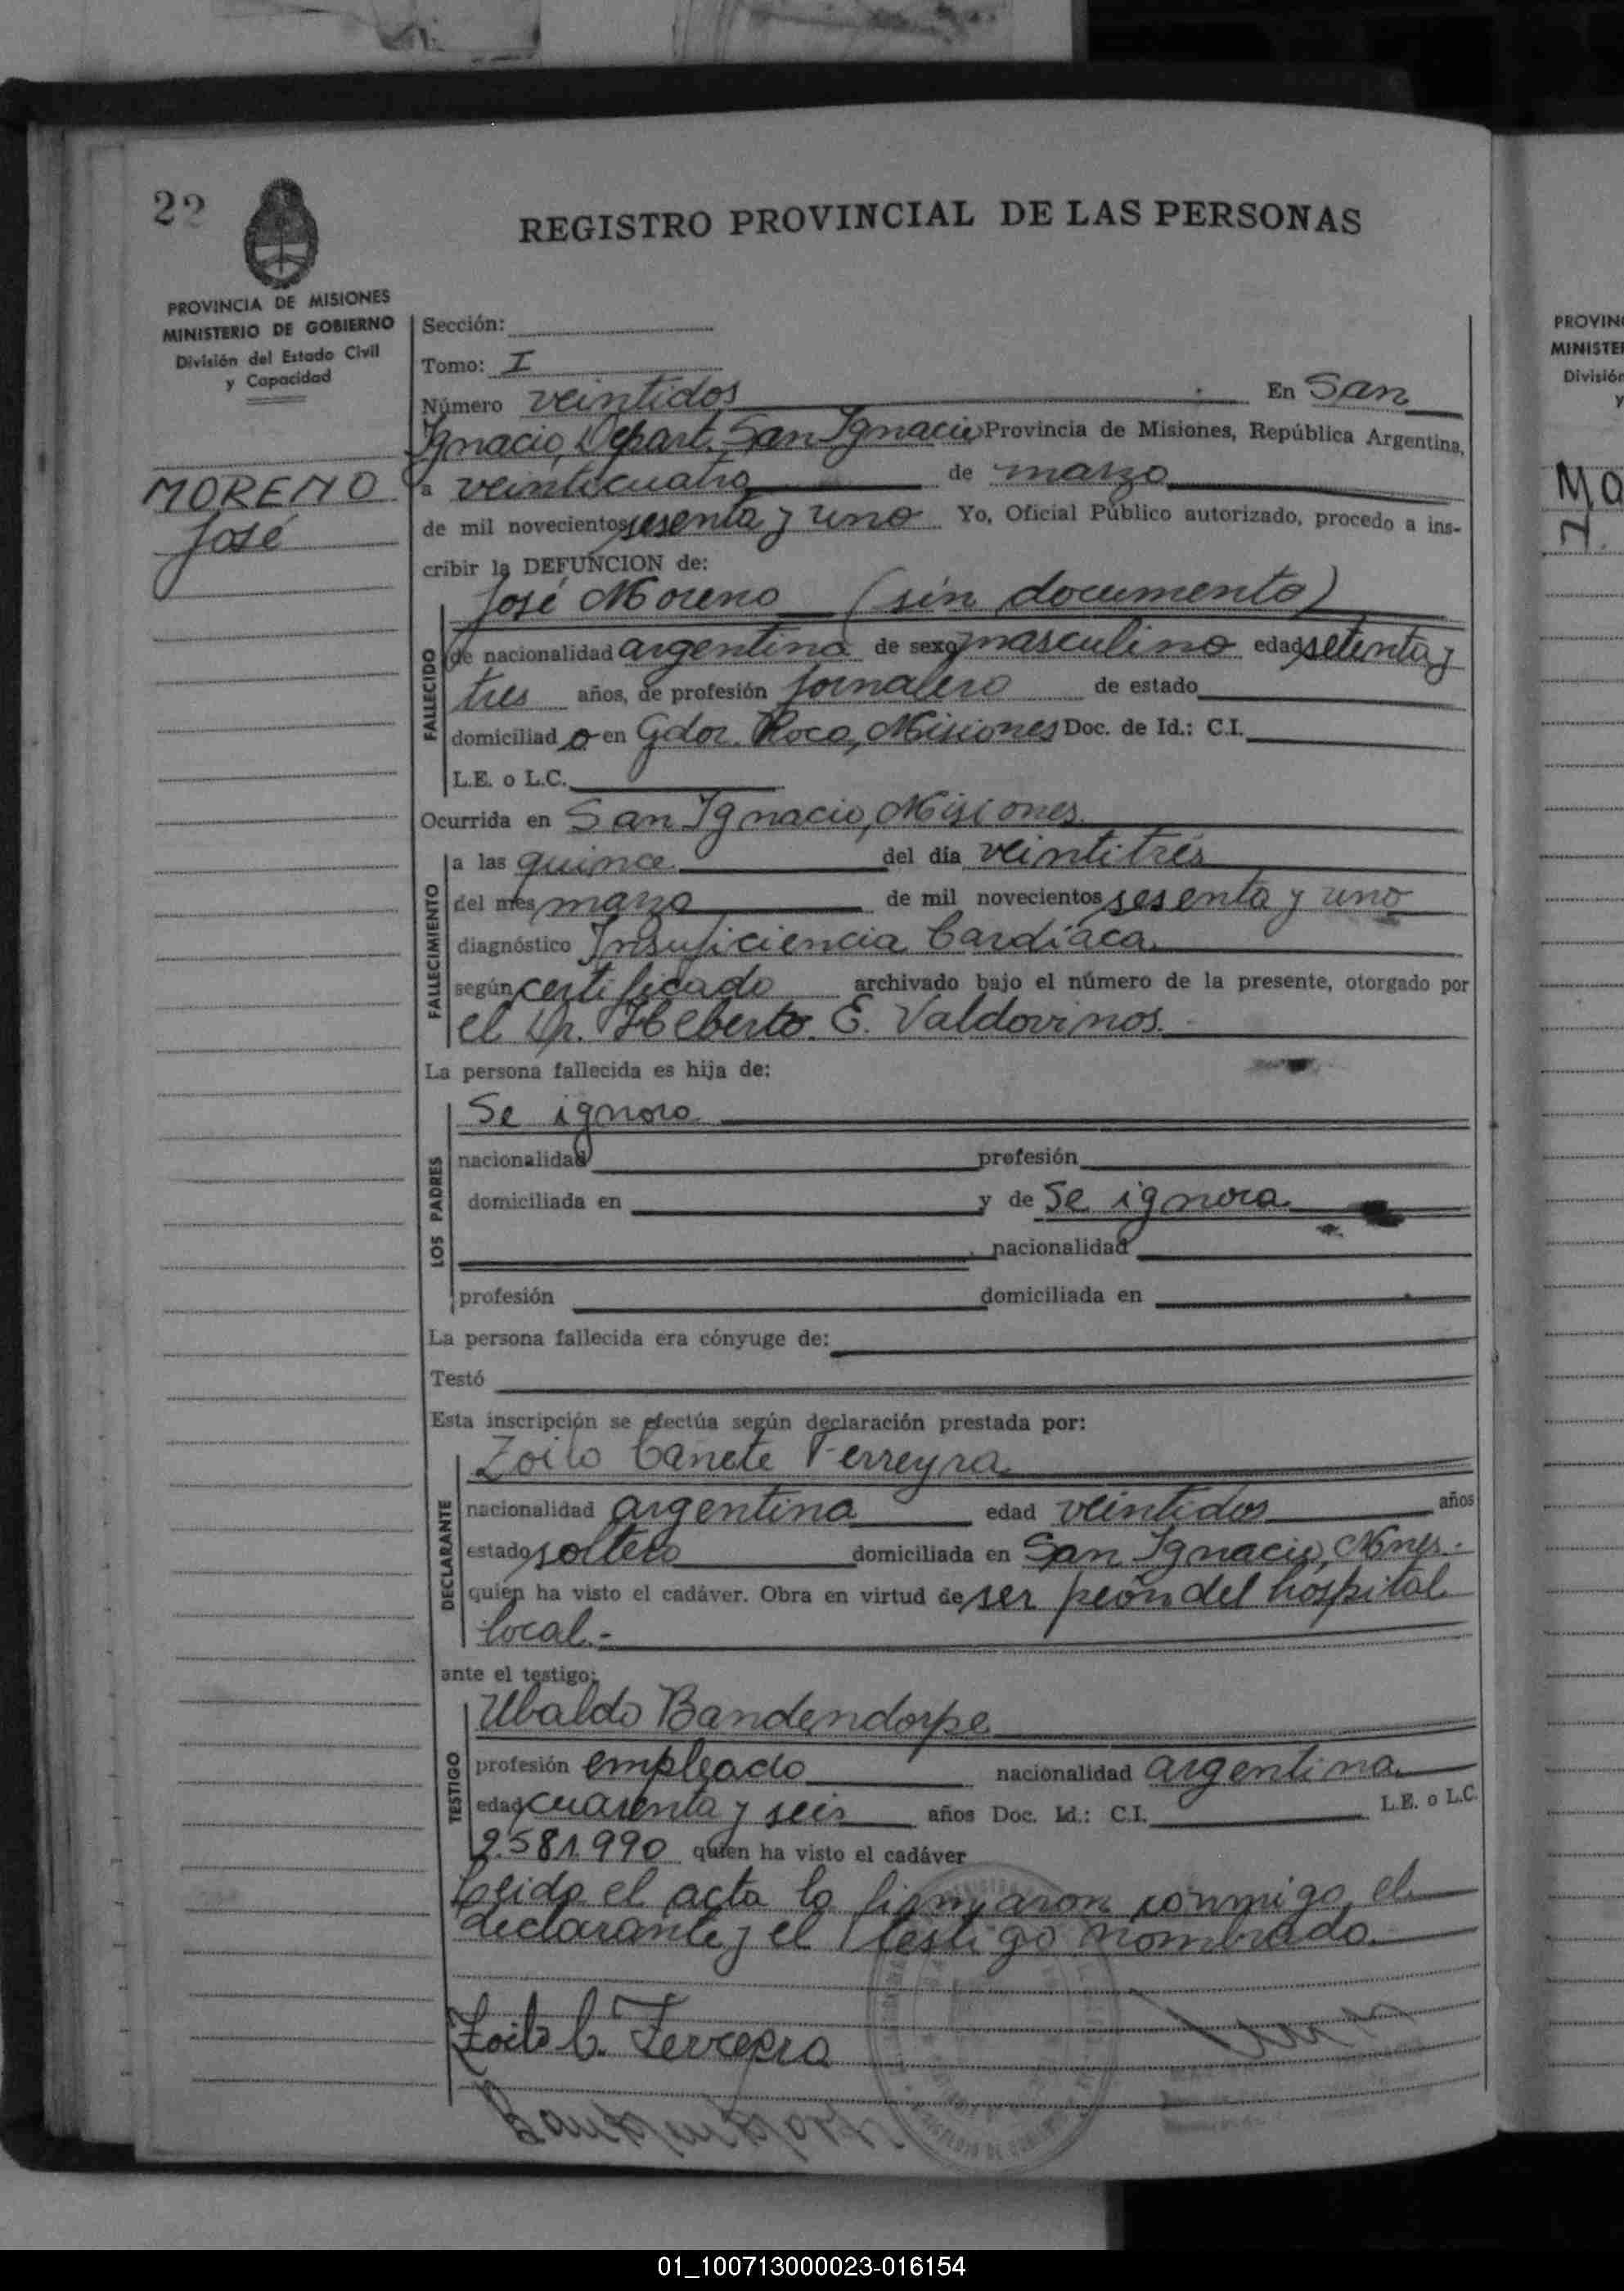 22
REGISTRO PROVINCIAL DE LAS PERSONAS
PROVINCIA DE MISIONES
MINISTERIO DE GOBIERNO
División del Estado Civil
y Capacidad
MORENO
José
Sección:
Tomo: I
Número veintidos En San
Ignacio, Depart. San Ignacio Provincia de Misiones, República Argentina,
a veinticuatro de marzo
de mil novecientos sesenta y uno Yo, Oficial Público autorizado, procedo a ins-
cribir la DEFUNCION de:
José Moreno (sin documento)
FALLECIDO
de nacionalidad argentina de sexo masculino edad setenta y
tres años, de profesión jornalero de estado
domiciliad o en Gdor. Roca, Misiones Doc. de Id.: C.I.
L.E. o L.C.
Ocurrida en San Ignacio, Misiones
FALLECIMIENTO
a las quince del día veintitrés
del mes marzo de mil novecientos sesenta y uno
diagnóstico Insuficiencia Cardíaca.
según certificado archivado bajo el número de la presente, otorgado por
el Dr. Heberto E. Valdovinos.
La persona fallecida es hija de:
LOS PADRES
Se ignora
nacionalidad profesión
domiciliada en y de Se ignora
nacionalidad
profesión domiciliada en
La persona fallecida era cónyuge de:
Testó
Esta inscripción se efectúa según declaración prestada por:
DECLARANTE
Zoilo Cañete Ferreyra
nacionalidad argentina edad veintidos años
estado soltero domiciliada en San Ignacio, Mnes.-
quien ha visto el cadáver. Obra en virtud de ser peón del hospital
local.-
ante el testigo:
TESTIGO
Ubaldo Bandendorpe
profesión empleado nacionalidad argentina
edad cuarenta y seis años Doc. Id.: C.I. L.E. o L.C.
2.581.990 quien ha visto el cadáver
Leida el acta la firmaron conmigo, el
declarante y el testigo nombrado.
Zoilo C. Ferreyra
PROVIN
MINISTE
División
y
MO
01_100713000023-016154